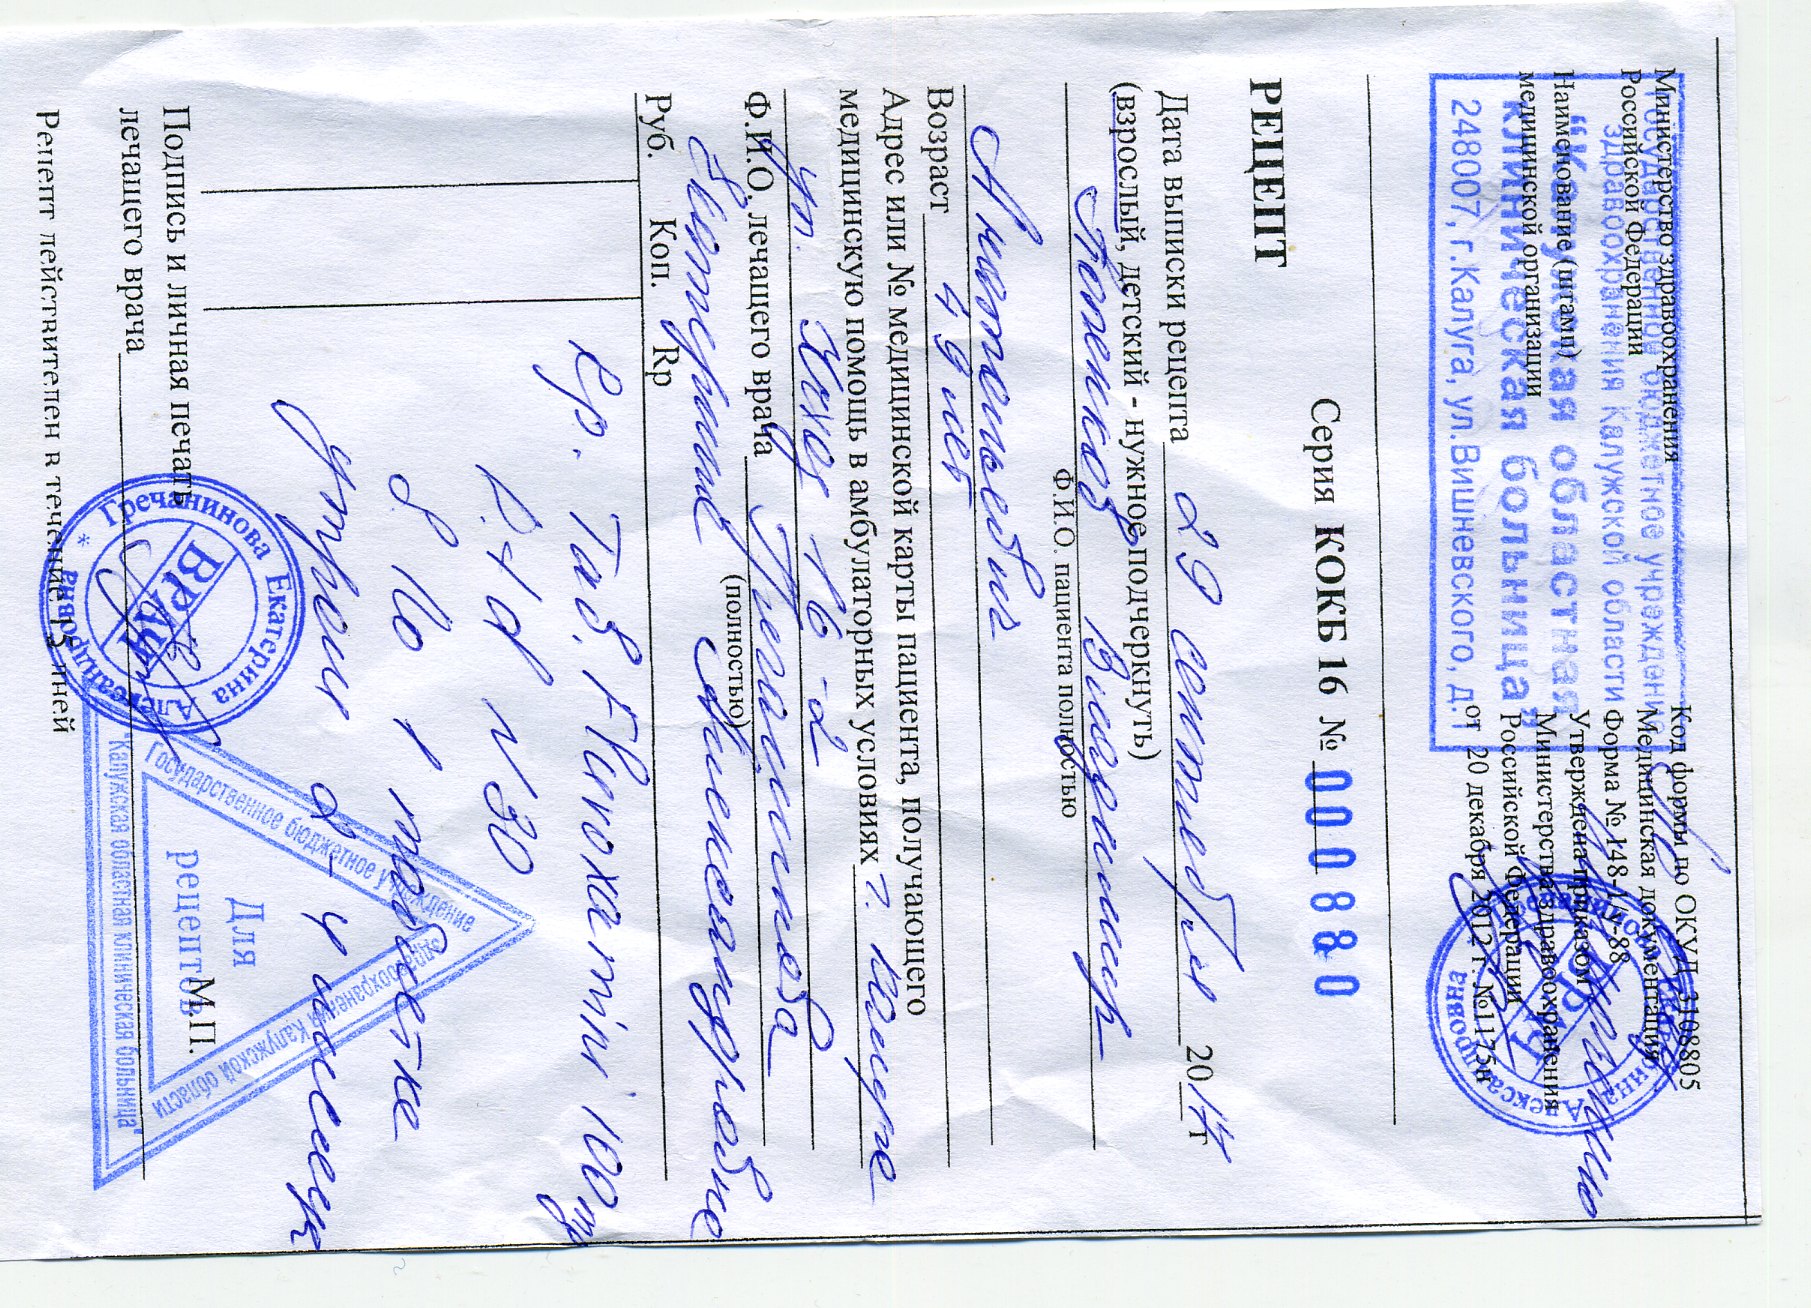 Министерство здравоохранения
Российской Федерации
Наименование (штамп)
медицинской организации
Государственное бюджетное учреждение
здравоохранения Калужской области
"Калужская областная
клиническая больница"
248007, г.Калуга, ул.Вишневского, д.1
Код формы по ОКУД 3108805
Медицинская документация
Форма № 148-1/у-88
Утверждена приказом
Министерства здравоохранения
Российской Федерации
от 20 декабря 2012 г. №1175н
Врач
Серия КОКБ 16 № 000880
РЕЦЕПТ
Дата выписки рецепта 29 сентября 2014 г
(взрослый, детский - нужное подчеркнуть)
Владимир
Ф.И.О. пациента полностью
Анатольевич
Возраст 49 лет
Адрес или № медицинской карты пациента, получающего
медицинскую помощь в амбулаторных условиях г. Калуга
16-2
Ф.И.О. лечащего врача Гречанинова
(полностью)
Екатерина Александровна
Руб. Коп. Rp
Rp. Таб. 100 mg
D.t.d N 30
S. По 1 таблетке
утром
Подпись и личная печать
лечащего врача
М.П.
Гречанинова Екатерина Александровна
Врач
Государственное бюджетное учреждение
здравоохранения Калужской области
"Калужская областная клиническая больница"
Для
рецептов
Рецепт действителен в течение 15 дней